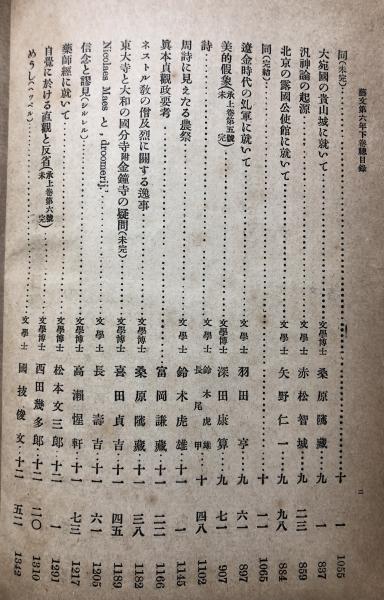 藝文第六年下卷總目錄
同(未完)…………十 一 1055
大宛國の貴山城に就いて…………文學博士 桑原隲藏…九 一 837
汎神論の起源…………文學士 赤松智城…九 二三 859
北京の露國公使館に就いて…………文學士 矢野仁一…九 九八 884
同(完結)…………十 一 1065
遼金時代の乣軍に就いて…………文學士 羽田亨…九 六一 897
美的假象(承上卷第五號未完)…………文學博士 深田康算…九 七一 907
詩…………文學士 鈴木虎雄 長尾甲…十 四八 1102
周詩に見えたる農祭…………文學士 鈴木虎雄…十一 一 1145
舊本貞觀政要考…………富岡謙藏…十一 二二 1166
ネストル敎の僧及烈に關する逸事…………文學博士 桑原隲藏…十一 三八 1182
東大寺と大和の國分寺附金鐘寺の疑問(未完)…………文學博士 喜田貞吉…十一 四五 1189
Nicolaes Maes と‚ droomerij‛…………文學士 長壽吉…十一 六一 1205
信念と謬見(シルレル)…………文學博士 高瀨惺軒…十一 七三 1217
藥師經に就いて…………文學博士 松本文三郎…十二 一 1291
自覺に於ける直觀と反省(承上卷第六號未完)…………文學博士 西田幾多郎…十二 二〇 1310
めうし(ヘッベル)…………文學士 國技俊文…十二 五二 1342
二